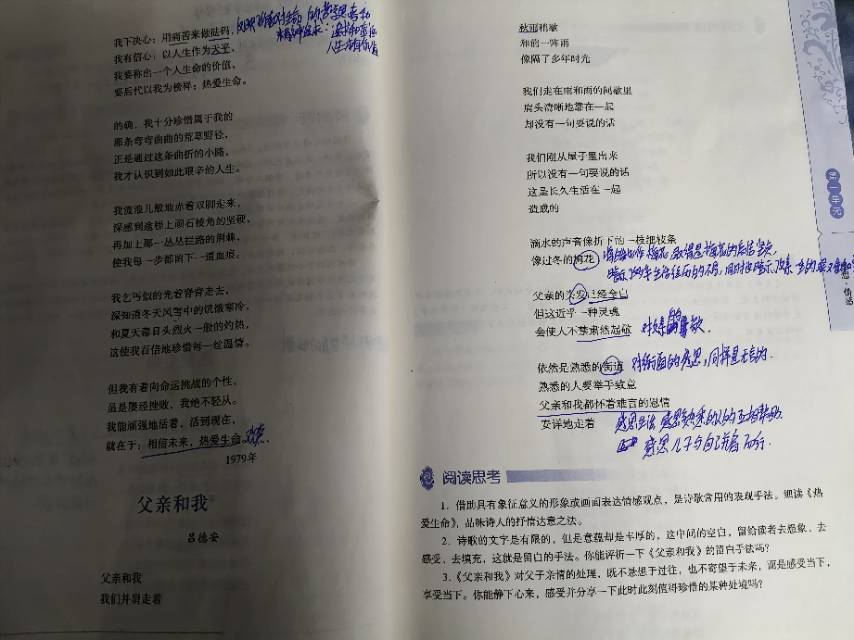 我下决心：用痛苦来做砝码，
我有信心：以人生作为天平，
我要称出一个人生命的价值，
要后代以我为榜样：热爱生命。
的确，我十分珍惜属于我的
那条弯弯曲曲的荒草野径，
正是通过这条曲折的小路，
我才认识到如此艰辛的人生。
我流浪儿般地赤着双脚走来，
深感到途程上顽石棱角的坚硬，
再加上那一丛丛拦路的荆棘，
使我每一步都留下一道血痕。
我乞丐似的光着脊背走去，
深知道冬天风雪中的饥饿寒冷，
和夏天毒日头烈火一般的灼热，
这使我百倍地珍惜每一丝温情。
但我有着向命运挑战的个性，
虽是屡经挫败，我绝不轻从。
我能顽强地活着，活到现在，
就在于：相信未来，热爱生命。
1979年
父亲和我
吕德安
父亲和我
我们并肩走着
秋雨稍歇
和前一阵雨
像隔了多年时光
我们走在雨和雨的间歇里
肩头清晰地靠在一起
却没有一句要说的话
我们刚从屋子里出来
所以没有一句要说的话
这是长久生活在一起
造成的
滴水的声音像折下的一枝细枝条
像过冬的梅花
父亲的头发已经全白
但这近乎一种灵魂
会使人不禁肃然起敬
依然是熟悉的街道
对街面的感恩，同样是无言的.
熟悉的人要举手致意
父亲和我都怀着难言的恩情
安详地走着
感恩生活 感恩熟悉的人的互相帮助.
感恩儿子与自己并肩而行.
阅读思考
1. 借助具有象征意义的形象或画面表达情感观点，是诗歌常用的表现手法。细读《热
爱生命》，品味诗人的抒情达意之法。
2. 诗歌的文字是有限的，但是意蕴却是丰厚的，这中间的空白，留给读者去想象、去
感受、去填充，这就是留白的手法。你能评析一下《父亲和我》的留白手法吗？
3.《父亲和我》对父子亲情的处理，既不悬想于过往，也不寄望于未来，而是感受当下，
享受当下。你能静下心来，感受并分享一下此时此刻值得珍惜的某种处境吗？
第一单元
思·情感